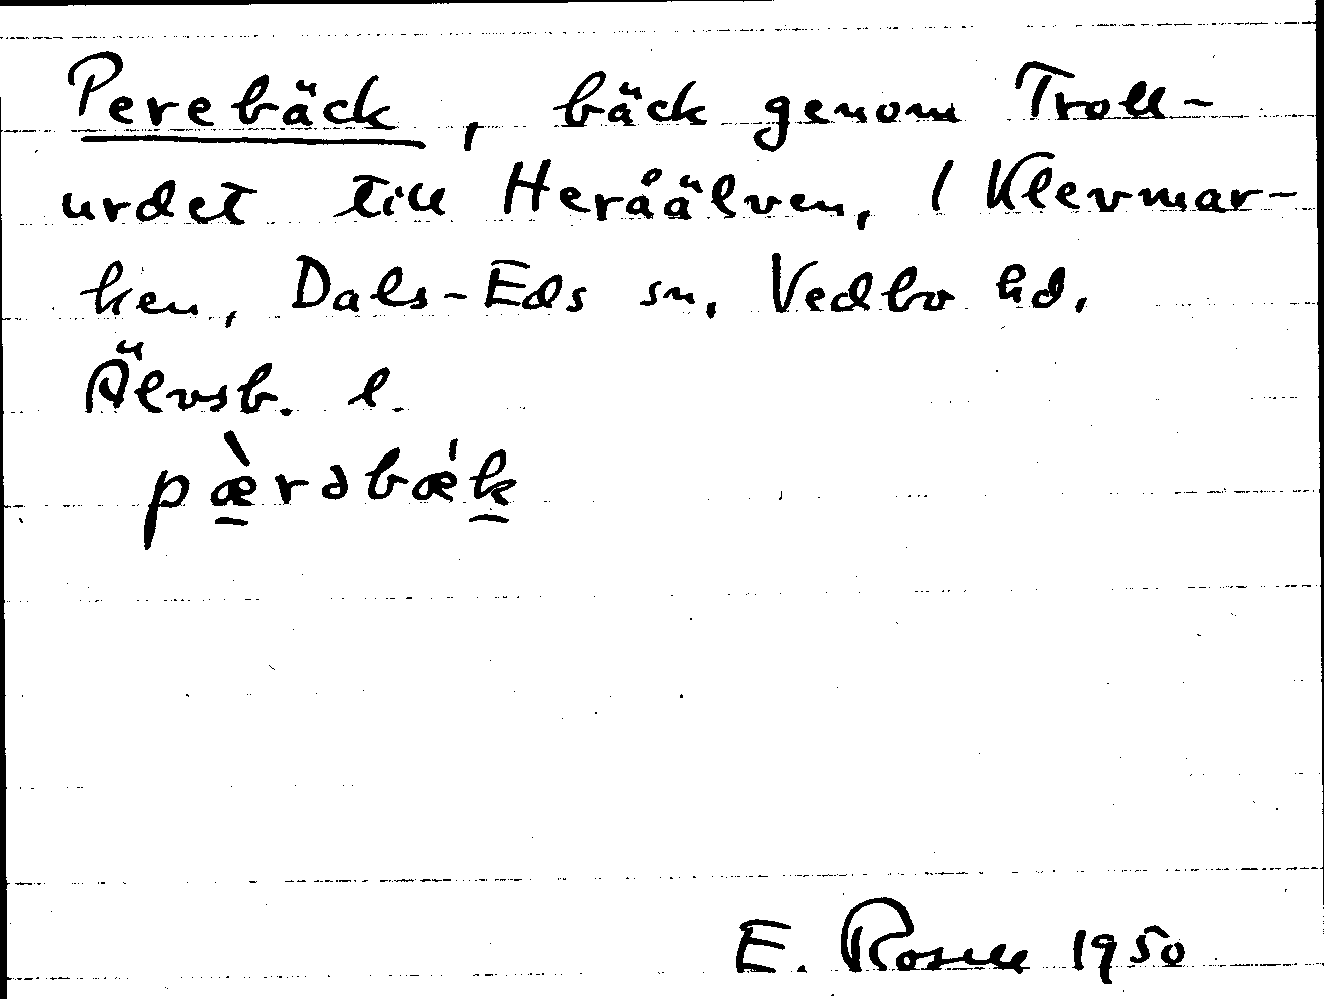 Perebäck, bäck genom Troll-
urdet till Heråälven, / Klevmar-
ken, Dals-Eds sn, Vedbo hd,
Älvsb. l.
pæ̀rəbæ'k
E. Rosell 1950